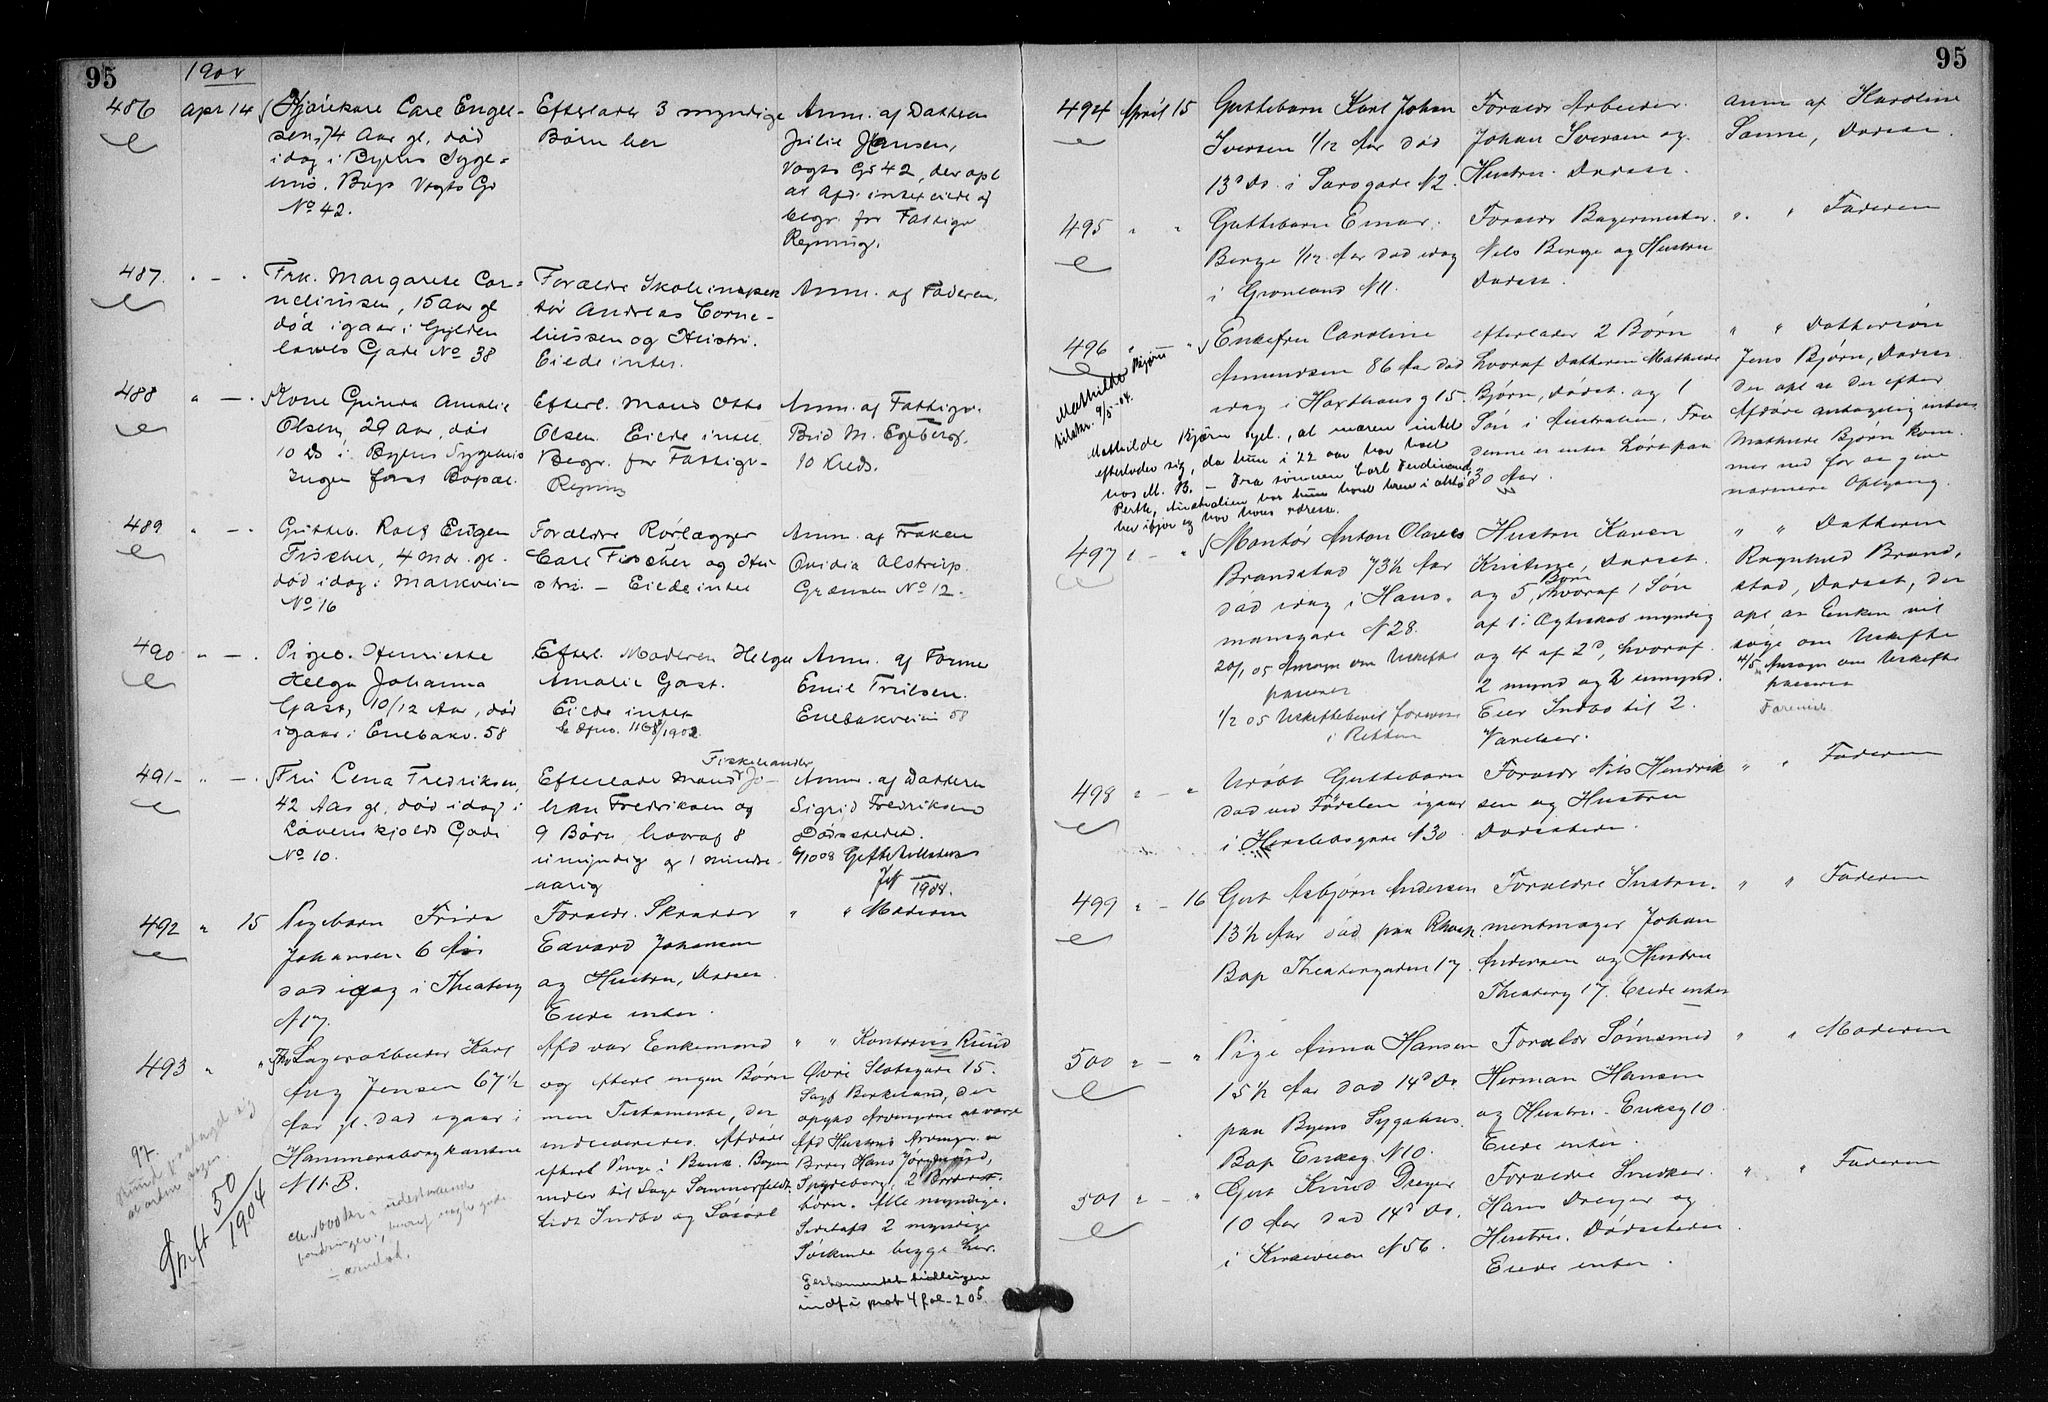 95
190
486 Apr 14 Carl Engel-
sen, 74 Aar gl. død
idag i Byens Syge-
hus. Bop Vogts Gd
No 42.
Efterlader 3 myndige
Børn her
Anm. af Datteren
Julie Hansen,
Vogts Gd 42, der opl.
at Afd. intet eiede og
begr. for Fattigv.
Regning.
487. " — .
Frk. Margarete Cor-
neliussen, 15 Aar gl
død igaar i Gylden
løves Gade No 38
Forældre Skoleinspek
tør Andreas Corne-
liussen og Hustru.
Eiede intet.
Anm. af Faderen.
488 " — .
Kone Gunda Amalie
Olsen, 29 Aar, død
10 Ds i Byens Sygehus
Ingen fast Bopæl.
Efterl. Mand Otto
Olsen. Eiede intet.
Begr. for Fattigv-
Regning
Anm. af Fattigv.
Bud M. Egeberg,
10 Kreds.
489 " — .
Gutteb. Rolf Eugen
Fischer, 4 mdr. gl.
død idag i Markveien
No 16
Forældre Rørlægger
Carl Fischer og Hu
stru. — Eiede intet
Anm. af Frøken
Ovidia Alstrup.
Grænsen No 12.
490 " — .
Pigeb. Henriette
Helga Johanna
Gast, 10/12 Aar, død
igaar i Enebakv. 58
Efterl. Moderen Helga
Amalie Gast.
Eiede intet
Anm. af
Emil Trulsen.
Enebakveien 58
491 " — .
Fru Lena Fredriksen,
42 Aar gl. død idag i
Løvenskjolds Gade
No 10.
Fiskehandler
Efterlader Mand Jo-
han Fredriksen og
9 Børn, hvoraf 8
umyndig og 1 mindre-
aarig
Anm. af Datteren
Sigrid Fredriksen
Dødsstedet.
1904.
492 " 15
Pigebarn Frida
Johansen 6 Aar
død idag i Theaterg
N 17.
Forældr. Skrædder
Edvard Johansen
og Hustru, Dødsst.
Eiede intet.
" " Moderen
493 " "
Lagerarbeider Karl
Aug Jensen 67½
Aar gl. død igaar i
Hammersborgkanten
N 11. B.
Afd var Enkemand
og efterl ingen Børn
men Testamente, der
indleveredes. Afdøde
efterl Penge i Bank. Bogen
indlev til Sagf Sommerfeldt.
Lidt Indbo og Løsøre
" " Kontorist Ruud
Øvre Slotsgade 15.
Sagf Birkeland, der
opgav Arvingerne at være
Afd Hustrus Arvinger
Broder Hans
Spydeberg, 2 Broder
børn. Alle myndige.
2 myndige
Søskende begge her.
Testamentet
indf i prot 4 fol. 205.
Skift 50/1904
95
494 April 15
Guttebarn Karl Johan
Iversen 1/12 Aar død
13d Ds. i Sarsgade N 2.
Forældr Arbeider
Johan Iversen og
Hustru. Dødsst.
Anm af Karoline
Sanne, Dødsst.
495 " "
Guttebarn Einar
Berge 1/12 Aar død idag
i Grønland N 11.
Forældr Bagermester
Nils Berge og Hustru
Dødsst.
" " Faderen
496 " "
Enkefru Caroline
Amundsen 86 Aar død
idag i Haxthausg 15.
efterlader 2 Børn
hvoraf Datteren Mathilde
Bjørn, Dødsst. og 1
Søn i Australien. Fra
denne er intet hørt paa
30 Aar.
" " Dattersøn
Jens Bjørn, Dødsst.
Der opl at der efter
Afdøde antagelig intet
Mathilde Bjørn kom-
mer ned for at give
nærmere Oplysng.
Mathilde Bjørn
tilstr. 9/5-04.
Mathilde Bjørn opl., at moren intet
efterlader sig, da hun i 22 aar har boet
hos M. B. — Fra sønnen Carl Ferdinand,
Perth, Australien har hun havt brev i okto
ber ifjor og har hans adresse.
497 " — "
Montør Anton Olaves
Brandstad 73½ Aar
død idag i Haus-
mansgade N 28.
20/1 05 Ansøgn om Uskifte
passerer
1/2 05 Uskiftebevil forevist
i Retten
Hustru Karen
Kristine, Dødsst.
og 5 Børn, hvoraf 1 Søn
af 1. Ægteskab myndig
og 4 af 2d, hvoraf
2 mynd og 2 umynd.
Eier Indbo til 2
Værelser.
" " Datteren
Ragnhild Brand-
stad, Dødsst, der
opl. at Enken vil
søge om Uskifte
4/5 Ansøgn om Uskifte
passerer
498 " — "
Udøbt Guttebarn
død ved Fødselen igaar
i Herslebsgade N 30
Forældr Nils Hendrik
sen og Hustru
Dødsstedet.
" " Faderen
499 " — 16
Gut Asbjørn Andersen
13½ Aar død paa Rhosp.
Bop Theatergaden 17.
Forældre Instru-
mentmager Johan
Andersen og Hustru
Theaterg 17. Eiede intet
" " Faderen
500 " — "
Pige Anna Hansen
15½ Aar død 14d Ds
paa Byens Sygehus.
Bop Enkeg. N 10.
Forældr Sømsmed
Herman Hansen
og Hustru. Enkeg 10.
Eiede intet.
" " Moderen
501 " — "
Gut Knud Dreyer
10 Aar død 14d Ds.
i Kirkeveien N 56.
Forældre Snedker
Hans Dreyer og
Hustru. Dødsstedet
Eiede intet.
" " Faderen